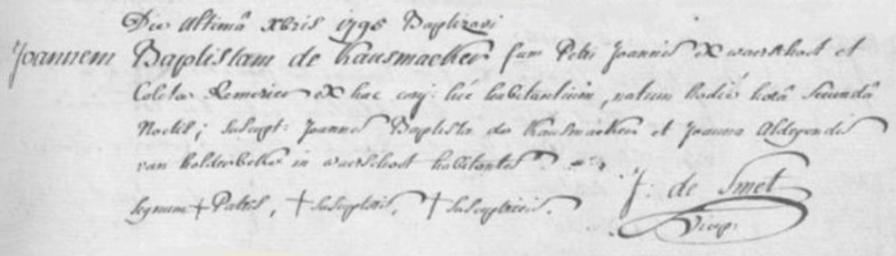 Die ultimâ Xbris 1795 Baptizavi
Joannem Baptistam de Kausmaecker fum Petri Joannis ex waerschoot et
Coleta ex hac conj: hic habitantium, natum hodie horâ secundâ
Noctis; suscept: Joannes Baptista de Kausmaecker et Joanna Aldegondis
van holderbeke in waerschoot habitantes
signum + Patris, + susceptoris, + susceptricis.
J: de Smet